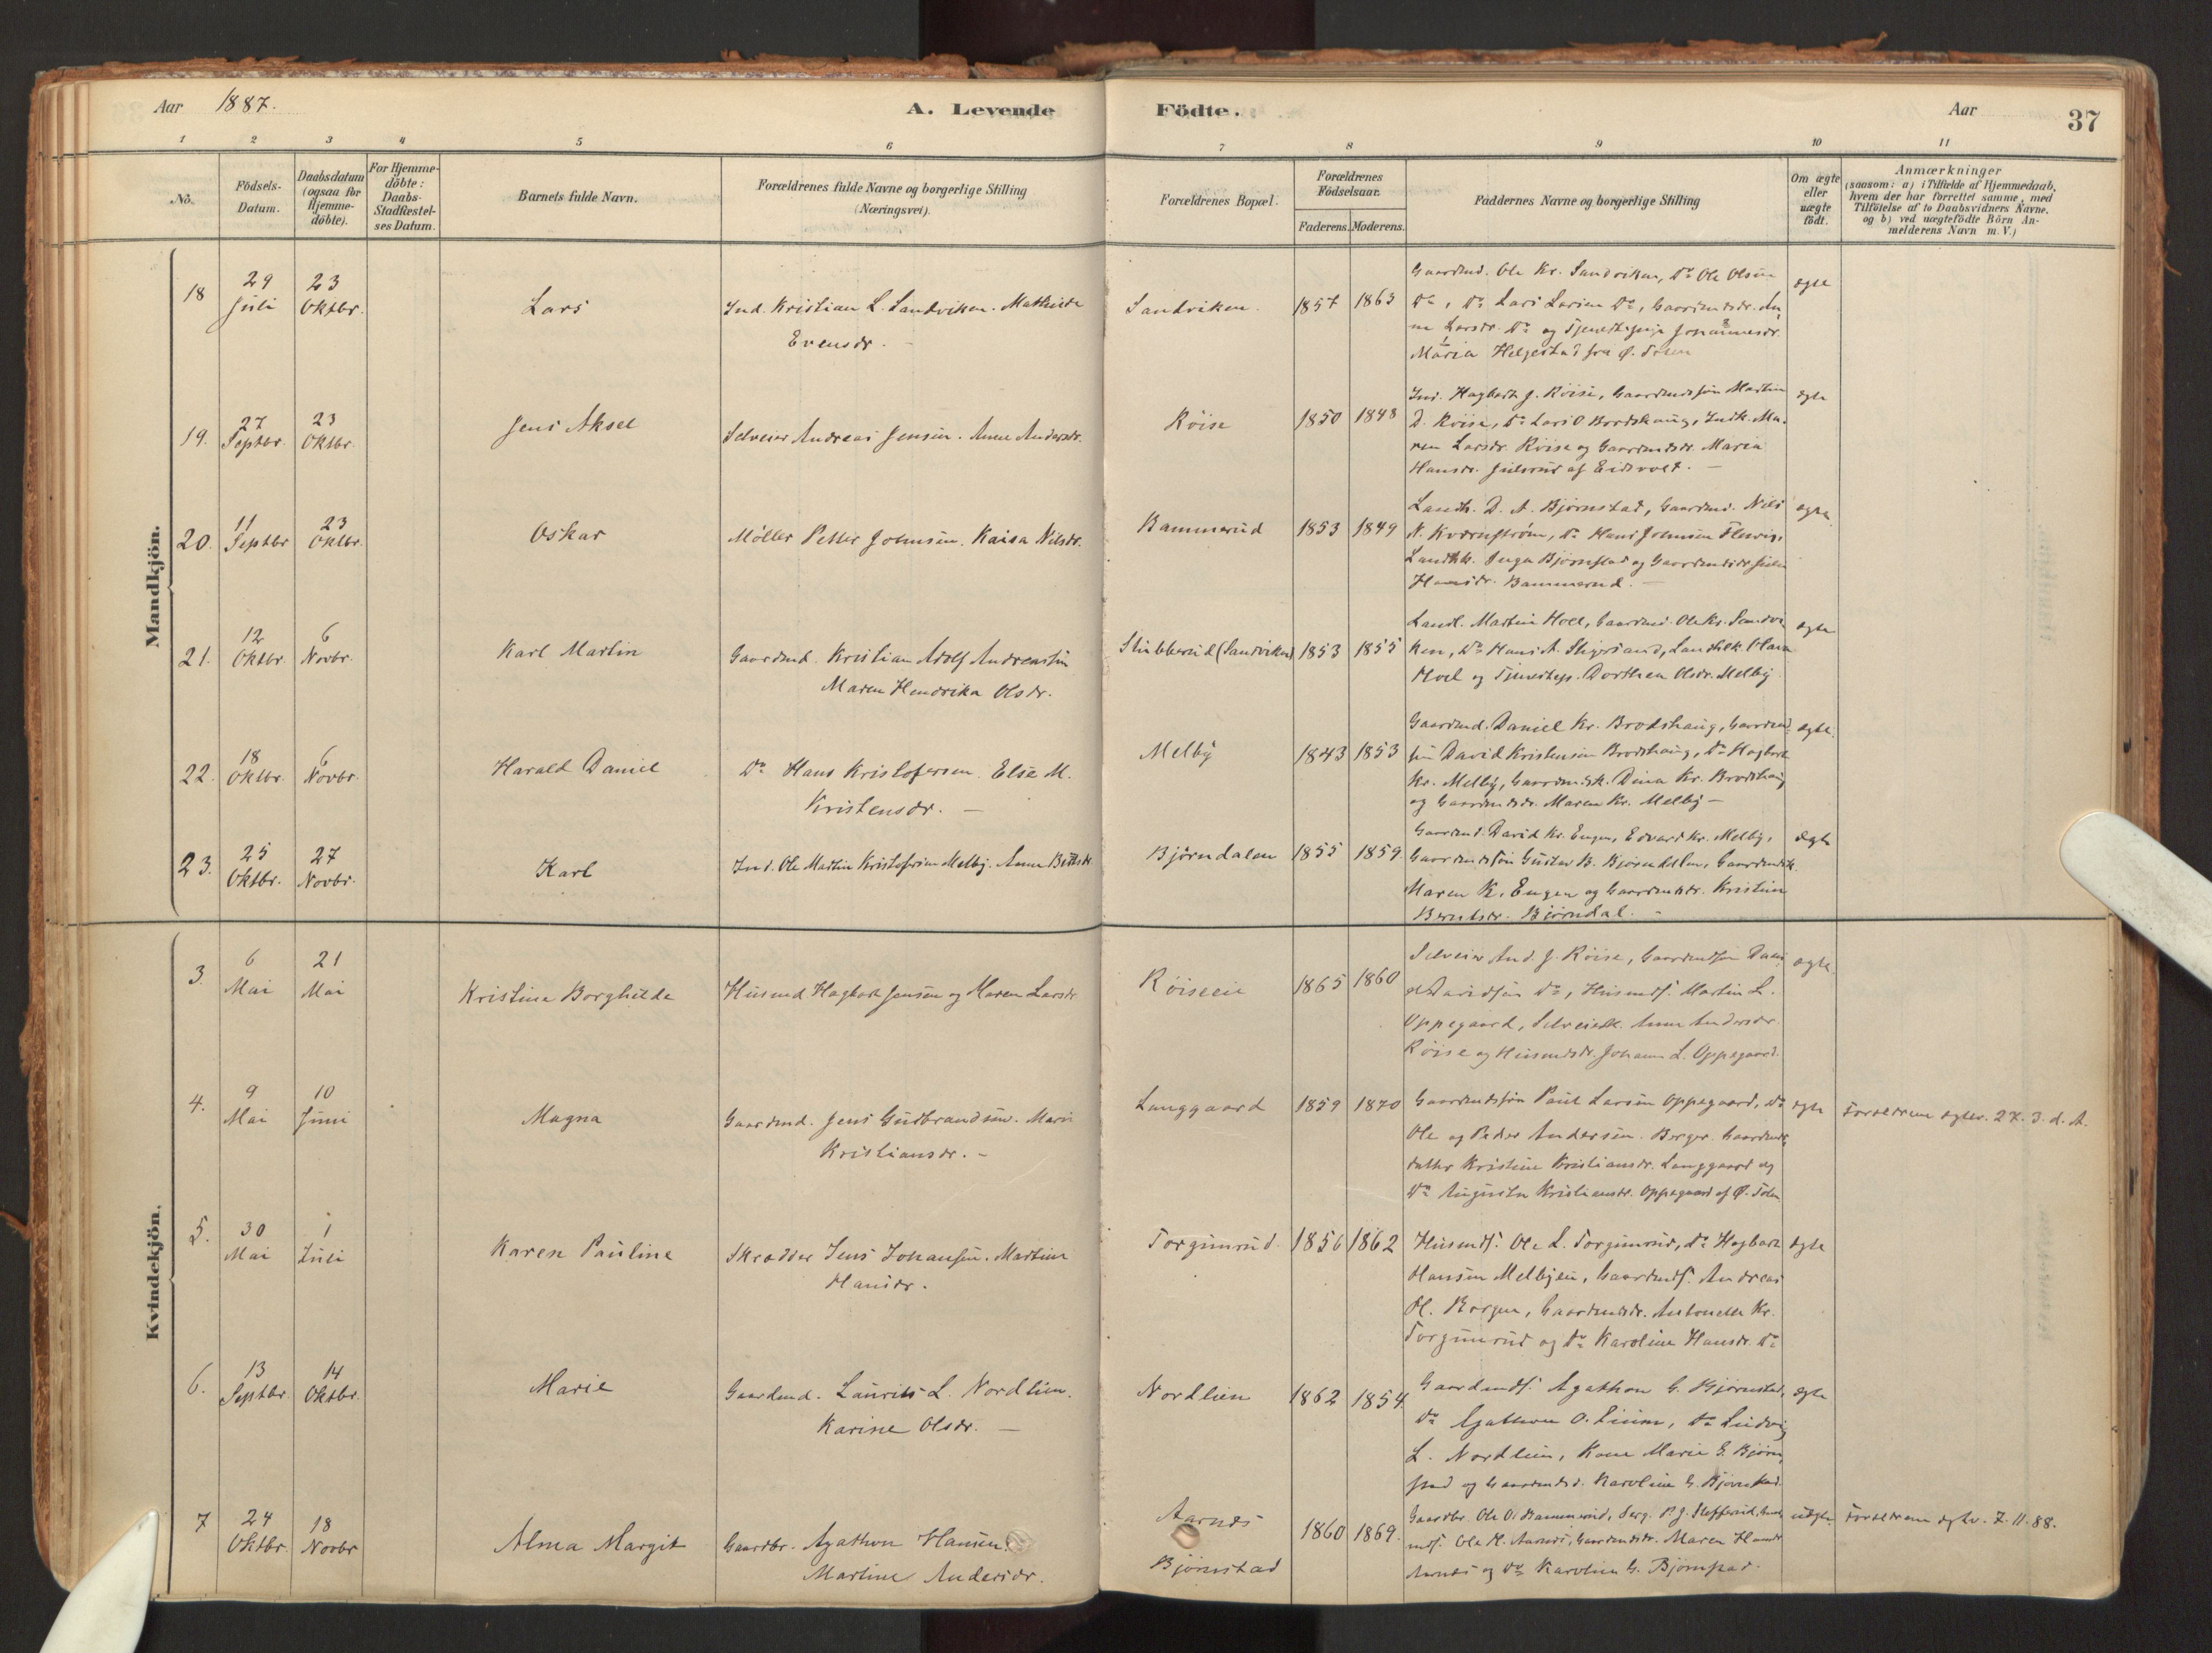 Aar 1887.
A. Levende Födte.
Aar
37
1 2 3 4 5 6 7 8 9 10 11
No.
Födsels-Datum.
Daabsdatum (ogsaa for Hjemme-döbte).
For Hjemme-döbte: Daabs-Stadfæstel-ses Datum.
Barnets fulde Navn.
Forældrenes fulde Navne og borgerlige Stilling (Næringsvei).
Forældrenes Bopæl.
Forældrenes Födselsaar.
Faderens. Moderens.
Faddernes Navne og borgerlige Stilling
Om ægte eller uægte födt.
Anmærkninger (saasom: a) i Tilfælde af Hjemmedaab, hvem der har forrettet samme, med Tilföielse af to Daabsvidners Navne, og b) ved uægtefödte Börn An-melderens Navn m. V.)
Mandkjön.
18 29 Juli 23 Oktbr. Lars
Ind. Kristian L. Sandviken. Mathilde
Evensdr.
Sandviken. 1857 1863
Gaardmd. Ole Kr. Sandviken, Do Ole Olsen
Do, Do Lars Larsen Do, Gaardmdsdr. An-
ne Larsdr. Do og Tjenestepige Johannesdr.
Maria Helgestad fra Ø. Toten
ægte
19. 27 Septbr. 23 Oktbr. Jens Aksel
Selveier Andreas Jensen. Anne Andersdr.
Röise 1850 1848
Ind. Hagbart J. Röise, Gaardmdssön Martin
D. Röise, Do Lars O Brodshaug, Indk. Ma-
ren Larsdr. Röise og Gaardmdsdr. Maria
Hansdr. Julsrud af Eidsvold.
ægte
20. 11 Septbr 23 Oktbr. Oskar
Möller Petter Johnsen. Kaisa Nilsdr.
Bammerud 1853 1849
Landh. D. A. Bjørnstad, Gaardmd. Nils
N. Kværnstrøm, Do Hans Johnsen
Landhk. Inga Bjørnstad og Gaardmdsdr
Hansdr. Bammerud.
ægte
21. 12 Oktbr 6 Novbr. Karl Martin
Gaardmd. Kristian Adolf Andreassen
Maren Hendrika Olsdr.
Stubberud (Sandviken) 1853 1855
Landh. Martin Hoel, Gaardmd. Ole Kr. Sandvi
ken, Do Hans A. Stigersand, Landhk. Olava
Hoel og Tjenestep. Dorthea Olsdr. Melby
ægte
22. 18 Oktbr. 6 Novbr. Harald Daniel
Do Hans Kristofersen. Else M.
Kristensdr.
Melby 1843 1853
Gaardmd. Daniel Kr. Brodshaug, Gaardmds
sön David Kristensen Brodshaug, Do Hagbart
Kr. Melby, Gaardmdsk. Dina Kr. Brodshaug
og Gaardmdsdr. Maren Kr. Melby
ægte.
23. 25 Oktbr. 27 Novbr. Karl
Ind. Ole Martin Kristofersen Melby. Anne Berntsdr
Bjørndalen 1855 1859
Gaardmd. David Kr. Engen, Edvard Kr. Melby,
Gaardmdssön Gustav B. Bjørndalen, Gaardmdsk.
Maren K. Engen og Gaardmdsdr. Kristine
Berntsdr. Bjørndal.
ægte
Kvindekjön.
3. 6 Mai 21 Mai Kristine Borghilde
Husmd Hagbart Jensen og Maren Larsdr
Röiseeie 1865 1860
Selveier And. J. Röise, Gaardmdssön Dani
el Davidsen Do, Husmds. Martin L.
Oppegaard, Selveiersk. Anne Andersdr.
Röise og Husmdsdr. Johanne L. Oppegaard.
ægte
4. 9 Mai 10 Juni Magna
Gaardmd. Jens Gudbrandsen. Mari
Kristiansdr.
Langgaard 1859 1870
Gaardmdssön Paul Larsen Oppegaard, Do
Ole og Peder Andersen Berger. Gaardmds
datter Kristine Kristiansdr. Langgaard og
Do Augusta Kristiansdr. Oppegaard af Ø. Toten
ægte
Forældrene ægtev. 27. 3. d. A.
5. 30 Mai 1 Juli Karen Pauline
Skrædder Jens Johansen. Martine
Hansdr.
Torgunrud 1856 1862
Husmds. Ole L. Torgunrud, Do Hagbart
Hansen Melbyeie, Gaardmds. Andreas
H. Borgen, Gaardmdsdr. Antonette Kr.
Torgunrud og Do Karoline Hansdr. Do
ægte
6. 13 Septbr. 14 Oktbr. Marie
Gaardmd. Laurits L. Nordlien.
Karine Olsdr.
Nordlien 1862 1854
Gaardmds. Agathon G. Bjørnstad,
Do Agathon O. Lium, Do Ludvig
L. Nordlien, Kone Marie G. Bjørn
stad og Gaardmdsd. Karoline G. Bjørnstad.
ægte
7 24 Oktbr. 18 Novbr Alma Margit
Gaardbr. Agathon Hansen.
Martine Andersdr.
Aarnæs
Bjørnstad 1860 1869.
Gaardbr. Ole O. Bammerud, Serg. P. J.
Ole H. Aarnæs, Gaardmdsdr. Maren Hansdr
Aarnæs og Do Karoline G. Bjørnstad.
uægte.
Forældrene ægtv. 7. 11. 88.